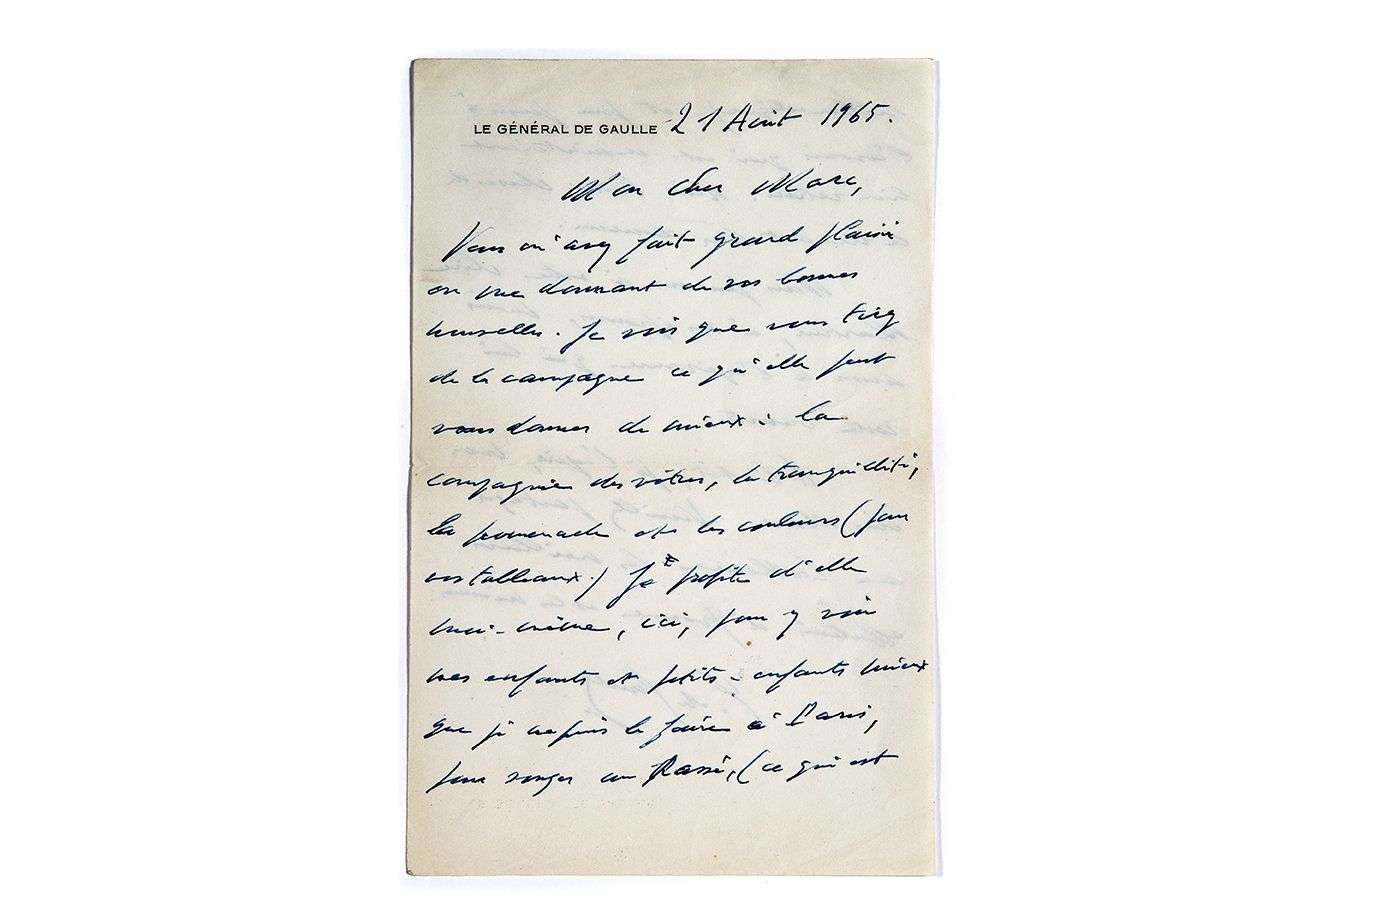 LE GÉNÉRAL DE GAULLE 21 Août 1965.
Mon cher Marc,
Vous m'avez fait grand plaisir
en me donnant de vos bonnes
nouvelles. Je vois que vous tirez
de la campagne ce qu'elle peut
vous donner de mieux : la
compagnie des vôtres, la tranquillité,
la promenade et les couleurs (pour
vos tableaux.) Je profite d'elle
moi-même, ici, pour y voir
mes enfants et petits-enfants mieux
que je ne puis le faire à Paris,
pour songer au Passé, (ce qui est